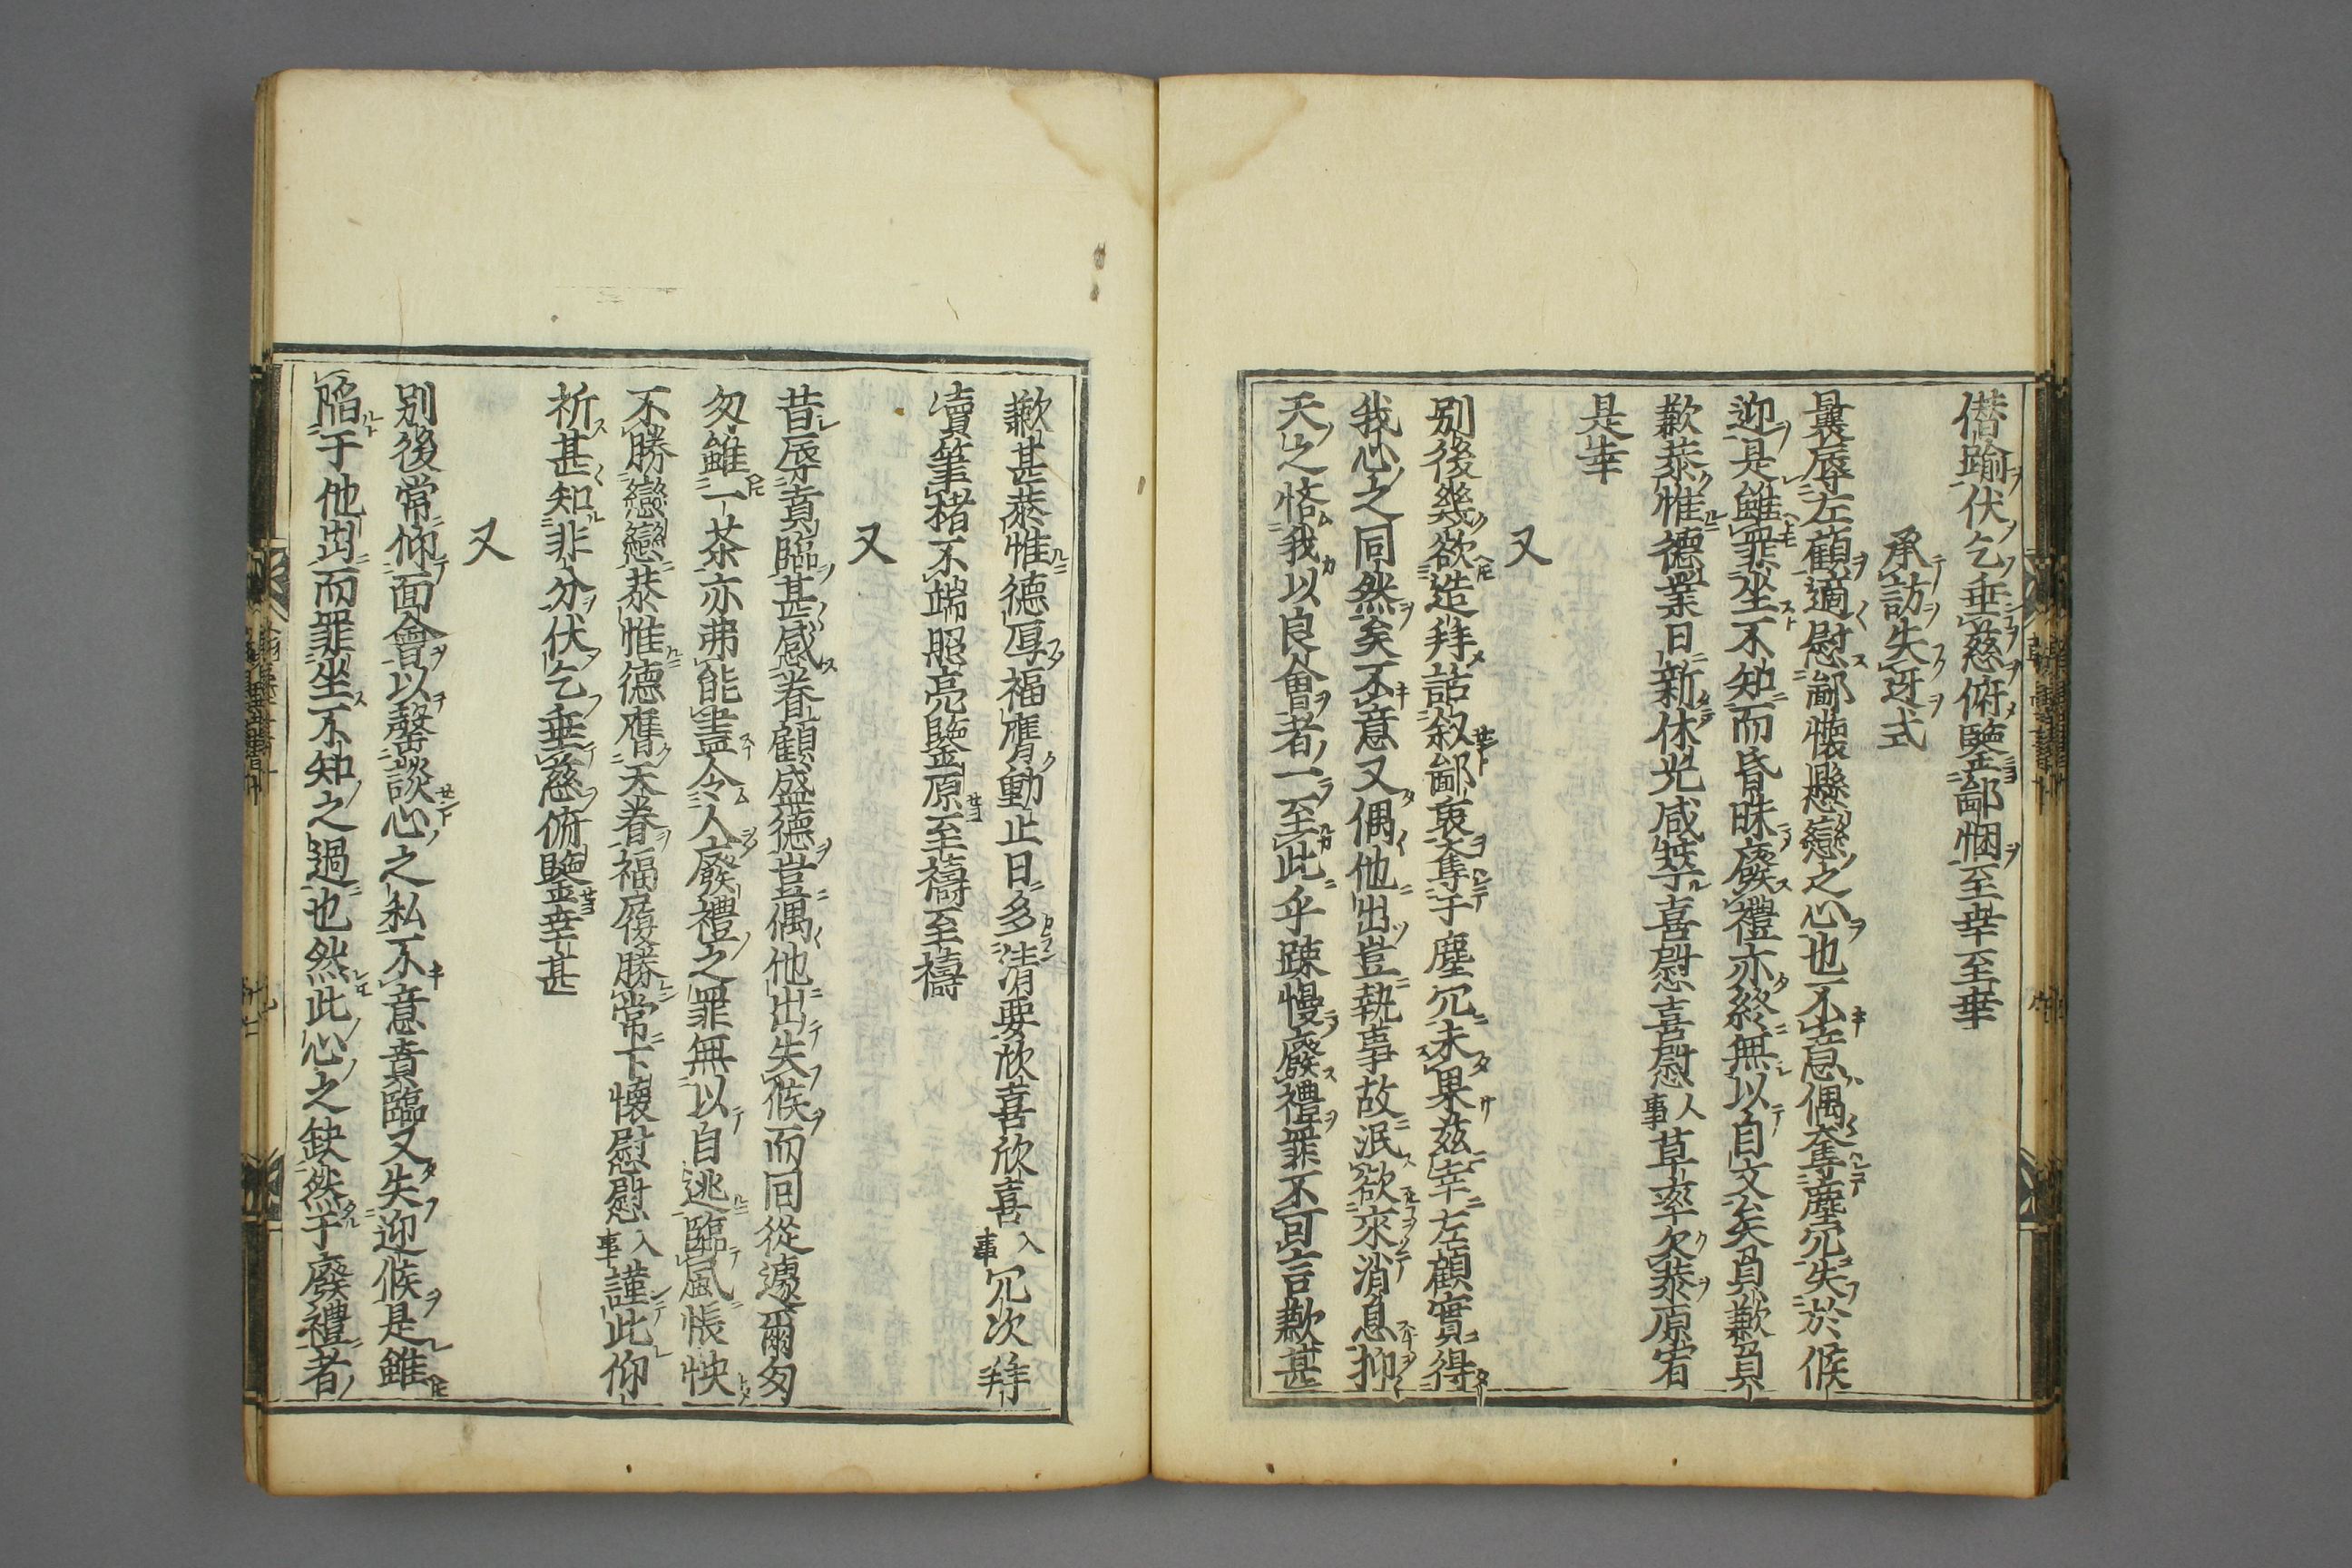 僣踰伏乞垂慈俯鑒鄙悃至幸至幸
承訪失迓式
曩辱左顧適慰鄙懷懸戀之心也不意偶奪塵冗失於候
迎是雖罪坐不知而昏昧廢禮亦終無以自文矣負歉負
歉恭惟德業日新休光咸萃喜慰喜慰人事草率欠恭原宥
是幸
又
別後幾欲造拜詣敘鄙衷奪于塵冗未果茲幸左顧實得
我心之同然矣不意又偶他出豈執事故泯欲來消息抑
天之恡我以良會者一至此乎踈慢廢禮罪不可言歉甚
歉甚恭惟德厚福膺動止日多清要欣喜欣喜人事冗次拜
瀆筆楮不端照亮鑒原至禱至禱
又
昔辱賁臨甚感眷顧盛德豈偶他出失候而同從遽爾匆
匆雖一茶亦弗能盡令人廢禮之罪無以自逃臨風悵怏
不勝戀戀恭惟德膺天眷福履勝常下懷慰慰人事謹此仰
祈甚知非分伏乞垂慈俯鑒幸甚
又
別後常仰面會以罄談心之私不意賁臨又失迎候是雖
陷于他出而罪坐不知之過也然此心之缺然于廢禮者